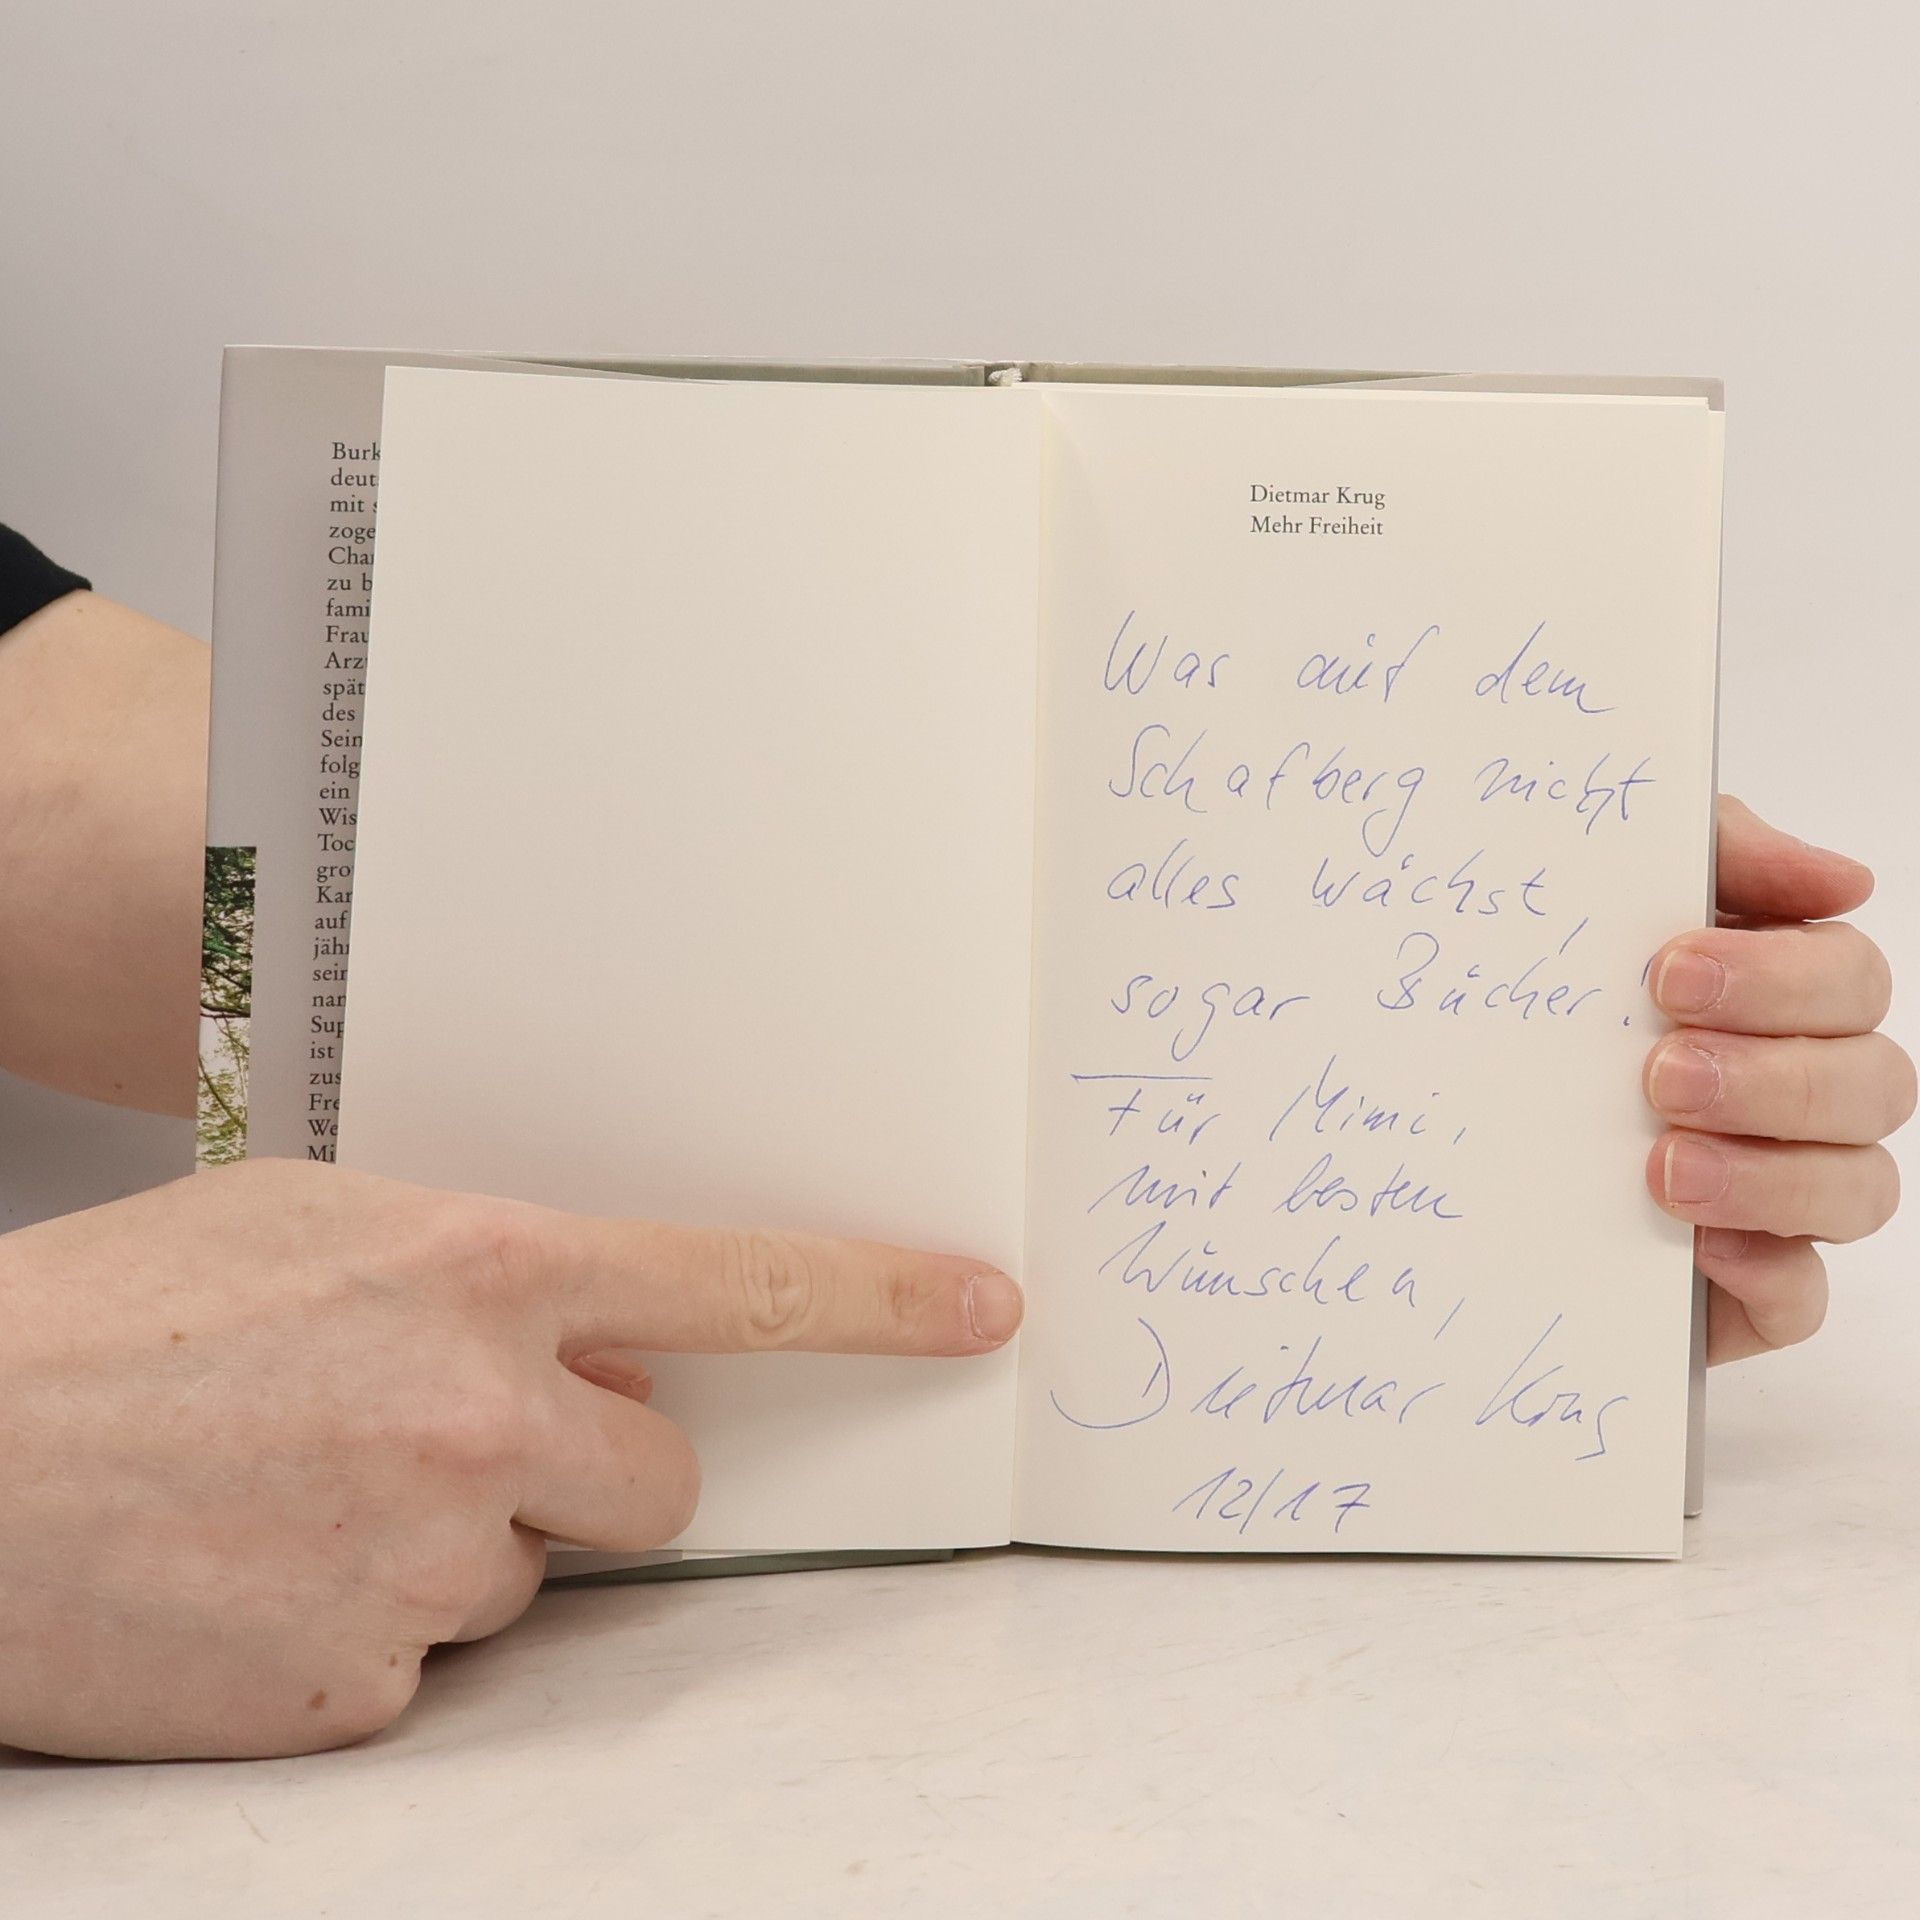 Burk
deut
mit s
zoge
Char
zu b
fami
Frau
Arz
spät
des
Sein
folg
ein
Wis
Toc
gro
Kar
auf
jähr
sein
nan
Sup
ist
zus
Fre
We
Mi
Dietmar Krug
Mehr Freiheit
Was auf dem
Schafberg nicht
alles wächst,
sogar Bücher!
Für Mimi,
mit besten
Wünschen,
Dietmar Krug
12/17